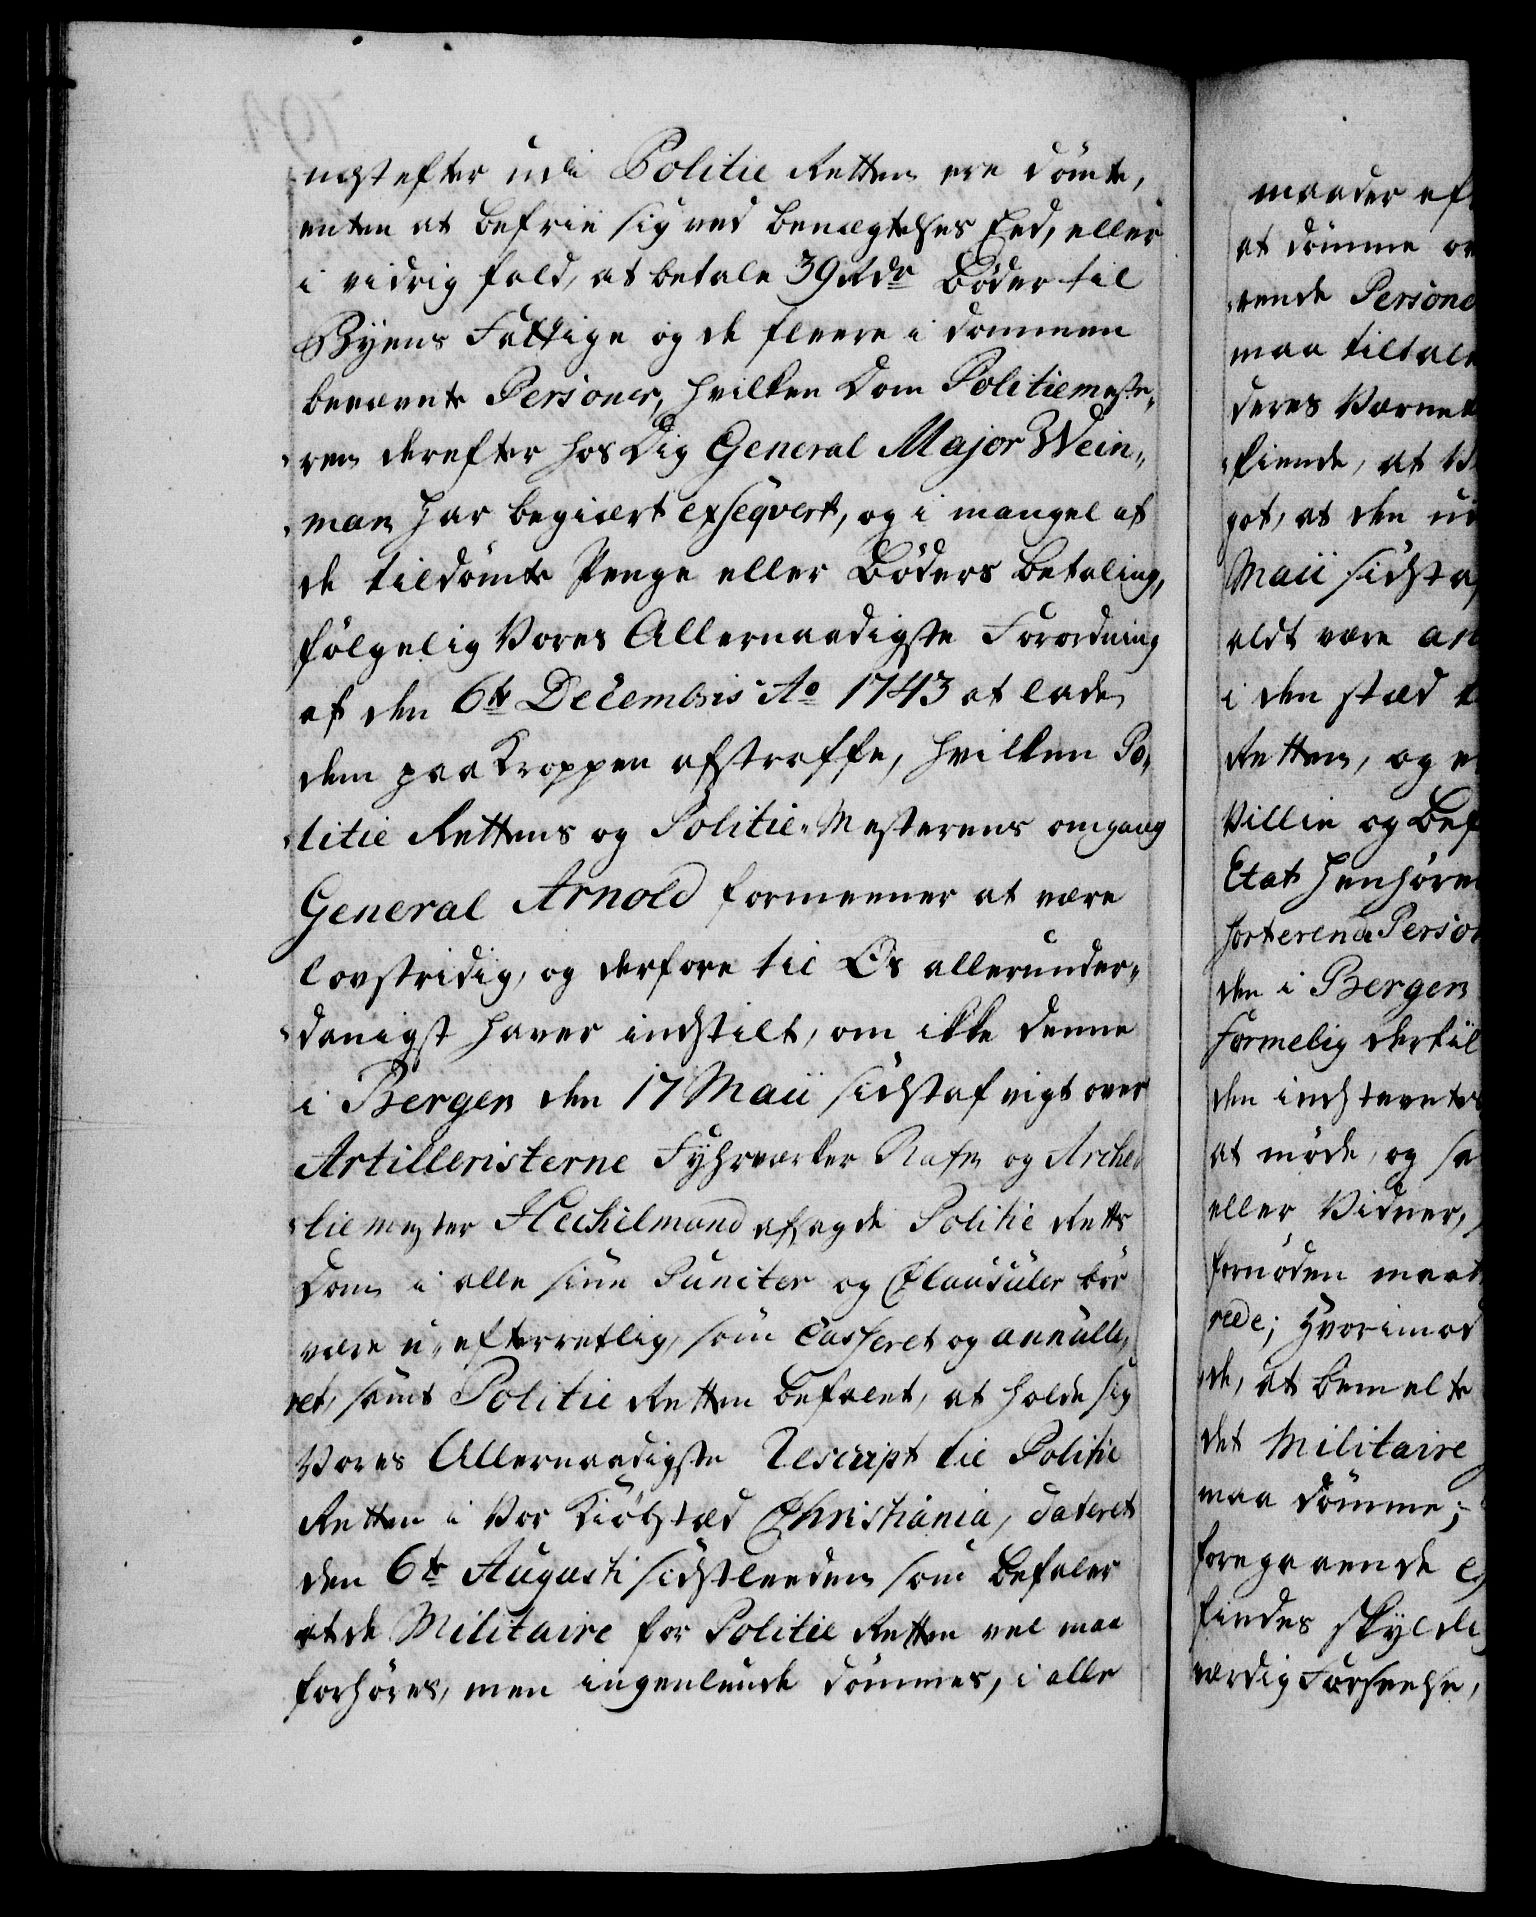 næst efter udi Politie Retten ere dömte,
enten at befrie sig ved benægtelses Eed, eller
i vidrig fald, at betale 39 Rdr Böder til
Byens Fattige og de fleere i dommen
benævnte Personer, hvilken Dom Politiemeste-
ren derefter hos Dig General Major Wein-
man har begiært exseqvert, og i mangel af
de tildömte Penge eller Böders betaling,
fölgelig Vores Allernaadigste Forordning
af den 6te Decembris Ao 1743 at lade
dem paa Kroppen afstraffe, hvilken Po-
litie Rettens og Politie-Mesterens omgang
General Arnold formeener at være
lovstridig, og derfore til Os allerunder-
danigst haver indstilt, om ikke denne
i Bergen den 17 Maii sidst afvigt over
Artilleristerne Fyhrværker Rafn og Archel-
liemester Heckelmand afsagde Politie Retts
Dom i alle sine Puncter og Clausuler bör
være u-efterretlig, som Casseret og annulle-
ret, samt Politie Retten befalet, at holde sig
Vores Allernaadigste Rescript til Politie
Retten i Vor Kiöbstæd Christiania, dateret
den 6te Augusti sidstleeden som befaler
at de Militaire for Politie Retten vel maa
forhöres, men ingenlunde dömmes, i alle
maader ef
at dömme ov
rende Persone
maa tiltale
deres Værne
fiende, at
got, at den ud
Maii sidst af
aldt være an
i den stæd
Retten, og
Villie og Bef
Etat henhören
sorterende Person
den i Bergen
Formelig dertil
den indstevnte
at möde, og
eller Vidner,
fornöden maat
rede; Hvorimod
de, at bemelte
det Militaire
maa dömme;
foregaaende
findes skyldig
værdig Forseelse,